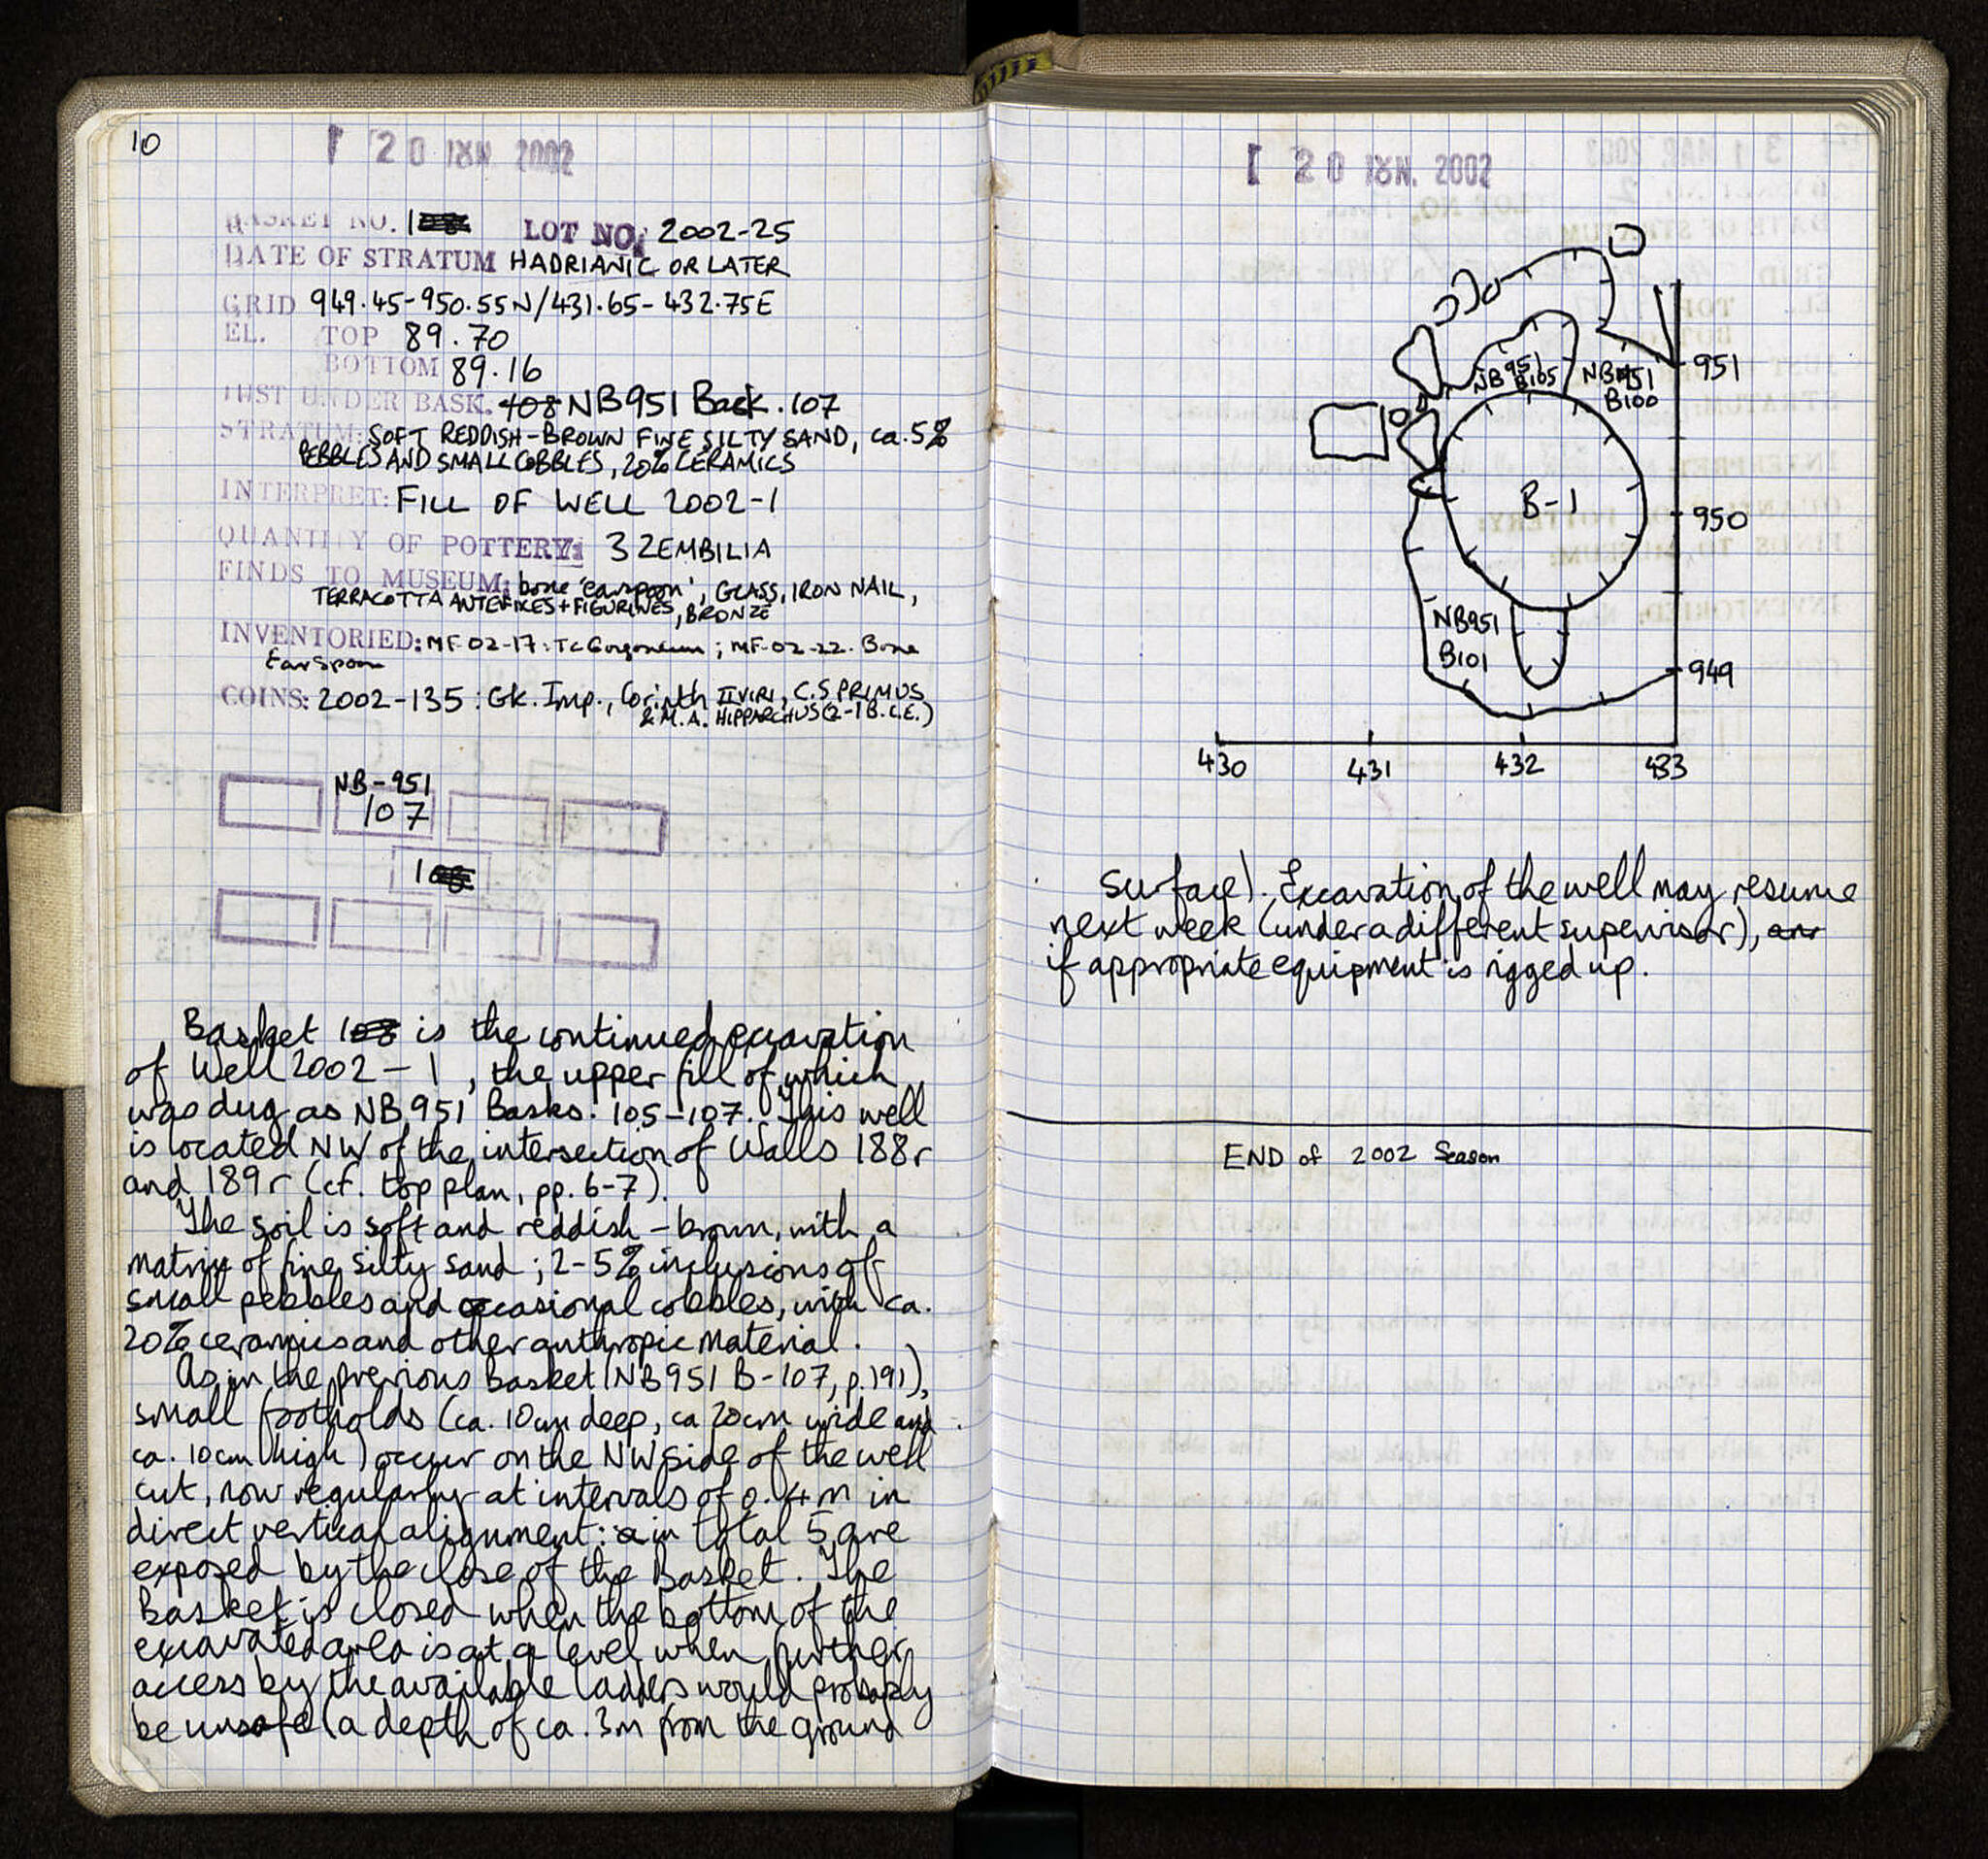 10
20 ΙΟΥΝ. 2002
BASKET NO. 1 LOT NO. 2002-25
DATE OF STRATUM HADRIANIC OR LATER
GRID 949.45-950.55N/431.65-432.75E
EL. TOP 89.70
BOTTOM 89.16
JUST UNDER BASK. 108 NB951 Bask. 107
STRATUM: SOFT REDDISH-BROWN FINE SILTY SAND, ca. 5%
PEBBLES AND SMALL COBBLES, 20% CERAMICS
INTERPRET: FILL OF WELL 2002-1
QUANTITY OF POTTERY: 3 ZEMBILIA
FINDS TO MUSEUM: bone 'earspoon', GLASS, IRON NAIL,
TERRACOTTA ANTEFIXES + FIGURINES, BRONZE
INVENTORIED: MF-02-17: Tc Gorgoneum; MF-02-22. Bone
Earspoon
COINS: 2002-135: Gk. Imp., Corinth IIVIRI, C.S PRIMUS
& M.A. HIPPARCHUS (2-1 B.C.E.)
NB-951
107
1
Basket 1 is the continued excavation
of Well 2002-1, the upper fill of which
was dug as NB951 Basks. 105-107. This well
is located NW of the intersection of Walls 188r
and 189r (cf. top plan, pp. 6-7).
The soil is soft and reddish-brown, with a
matrix of fine silty sand; 2-5% inclusions of
small pebbles and occasional cobbles, with ca.
20% ceramics and other anthropic material.
As in the previous basket (NB951 B-107, p.191),
small footholds (ca. 10cm deep, ca 20cm wide and
ca. 10cm high) occur on the NW side of the well
cut, now regularly at intervals of 0.4m in
direct vertical alignment: in total 5 are
exposed by the close of the Basket. The
Basket is closed when the bottom of the
excavated area is at a level when further
access by the available ladders would probably
be unsafe (a depth of ca. 3m from the ground
20 ΙΟΥΝ. 2002
NB951
B105
NB951
B100
951
B-1
950
NB951
B101
949
430 431 432 433
surface). Excavation of the well may resume
next week (under a different supervisor), are
if appropriate equipment is rigged up.
END of 2002 Season